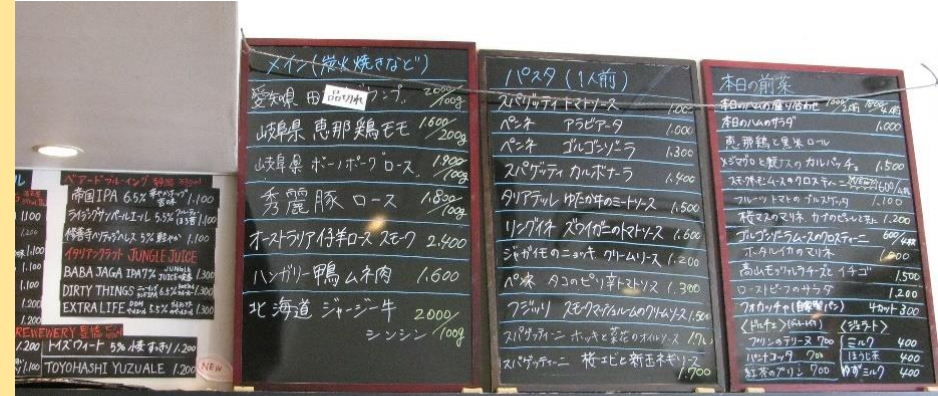 ベアードブルーイング
帝国IPA 6.5% 華やかホップ 苦味 1.100
ライジングサンペールエール 5.5% ほろ苦 1.100
修善寺ヘリテッジヘレス 5% 軽やか 1.100
イタリアンクラフト JUNGLE JUICE
BABA JAGA IPA 7% JUNGLE JUICE 1.300
DIRTY THINGS 5.5% 1.300
EXTRA LIFE DDH 5.5% 1.300
トイズウィート 5% 小麦 すっきり 1.200
TOYOHASHI YUZU ALE 1.200 NEW
メイン(炭火焼きなど)
愛知県 田 品切れ ランプ 2000/100g
岐阜県 恵那鶏モモ 1.600/200g
岐阜県 ボーノポーク ロース 1.900/100g
秀麗豚 ロース 1.800/100g
オーストラリア仔羊ロース スモーク 2.400
ハンガリー鴨ムネ肉 1.600
北海道 ジャージー牛 2000/100g
シンシン
パスタ (1人前)
スパゲッティ トマトソース 1.000
ペンネ アラビアータ 1.000
ペンネ ゴルゴンゾーラ 1.300
スパゲッティ カルボナーラ 1.400
タリアテッレ ゆだか牛のミートソース 1.500
リングイネ ズワイガニのトマトソース 1.600
ジャガイモのニョッキ クリームソース 1.200
ペンネ タコのピリ辛トマトソース 1.300
フジッリ スモークマッシュルームのクリームソース 1.500
スパゲッティーニ ホッキと菜花のオイルソース 1.700
スパゲッティーニ 桜エビと新玉ネギソース 1.700
本日の前菜
本日のハムの盛り合わせ
本日のハムのサラダ 1.000
恵那鶏と黒米ロール
メジマグロと観アスのカルパッチョ 1.500
スモークサーモンムースのクロスティーニ 600/4枚
フルーツトマトのブルスケッタ 1.100
桜マスのマリネ 1.200
ゴルゴンゾーラムースのクロスティーニ 600/4枚
ホタルイカのマリネ 1.000
高山モッツァレラチーズとイチゴ 1.500
ローストビーフのサラダ 1.200
フォカッチャ(自家製パン) 4カット 300
〈ドルチェ〉 〈ジェラート〉
プリンのテリーヌ 700 ミルク 400
パンナコッタ 700 ほうじ茶 400
紅茶のプリン 700 ゆずミルク 400